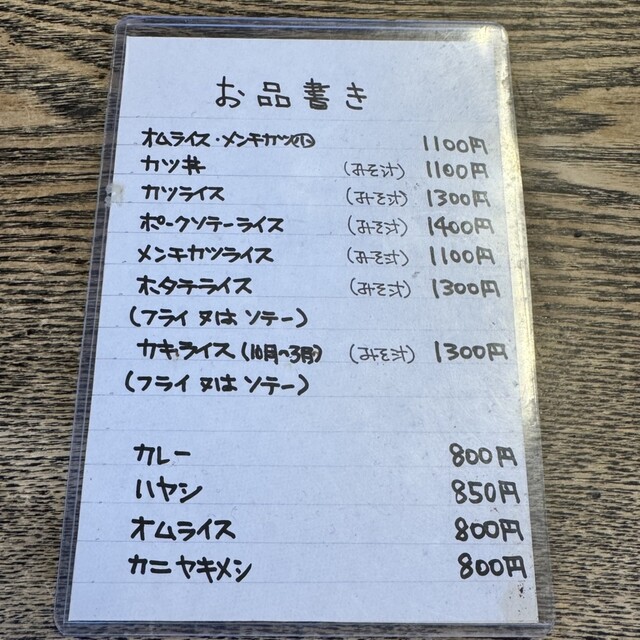 お品書き
オムライス・メンチカツ㊙ 1100円
カツ丼 (みそ汁) 1100円
カツライス (みそ汁) 1300円
ポークソテーライス (みそ汁) 1400円
メンチカツライス (みそ汁) 1100円
ホタテライス (みそ汁) 1300円
(フライ又はソテー)
カキライス(10月〜3月) (みそ汁) 1300円
(フライ又はソテー)
カレー 800円
ハヤシ 850円
オムライス 800円
カニヤキメシ 800円